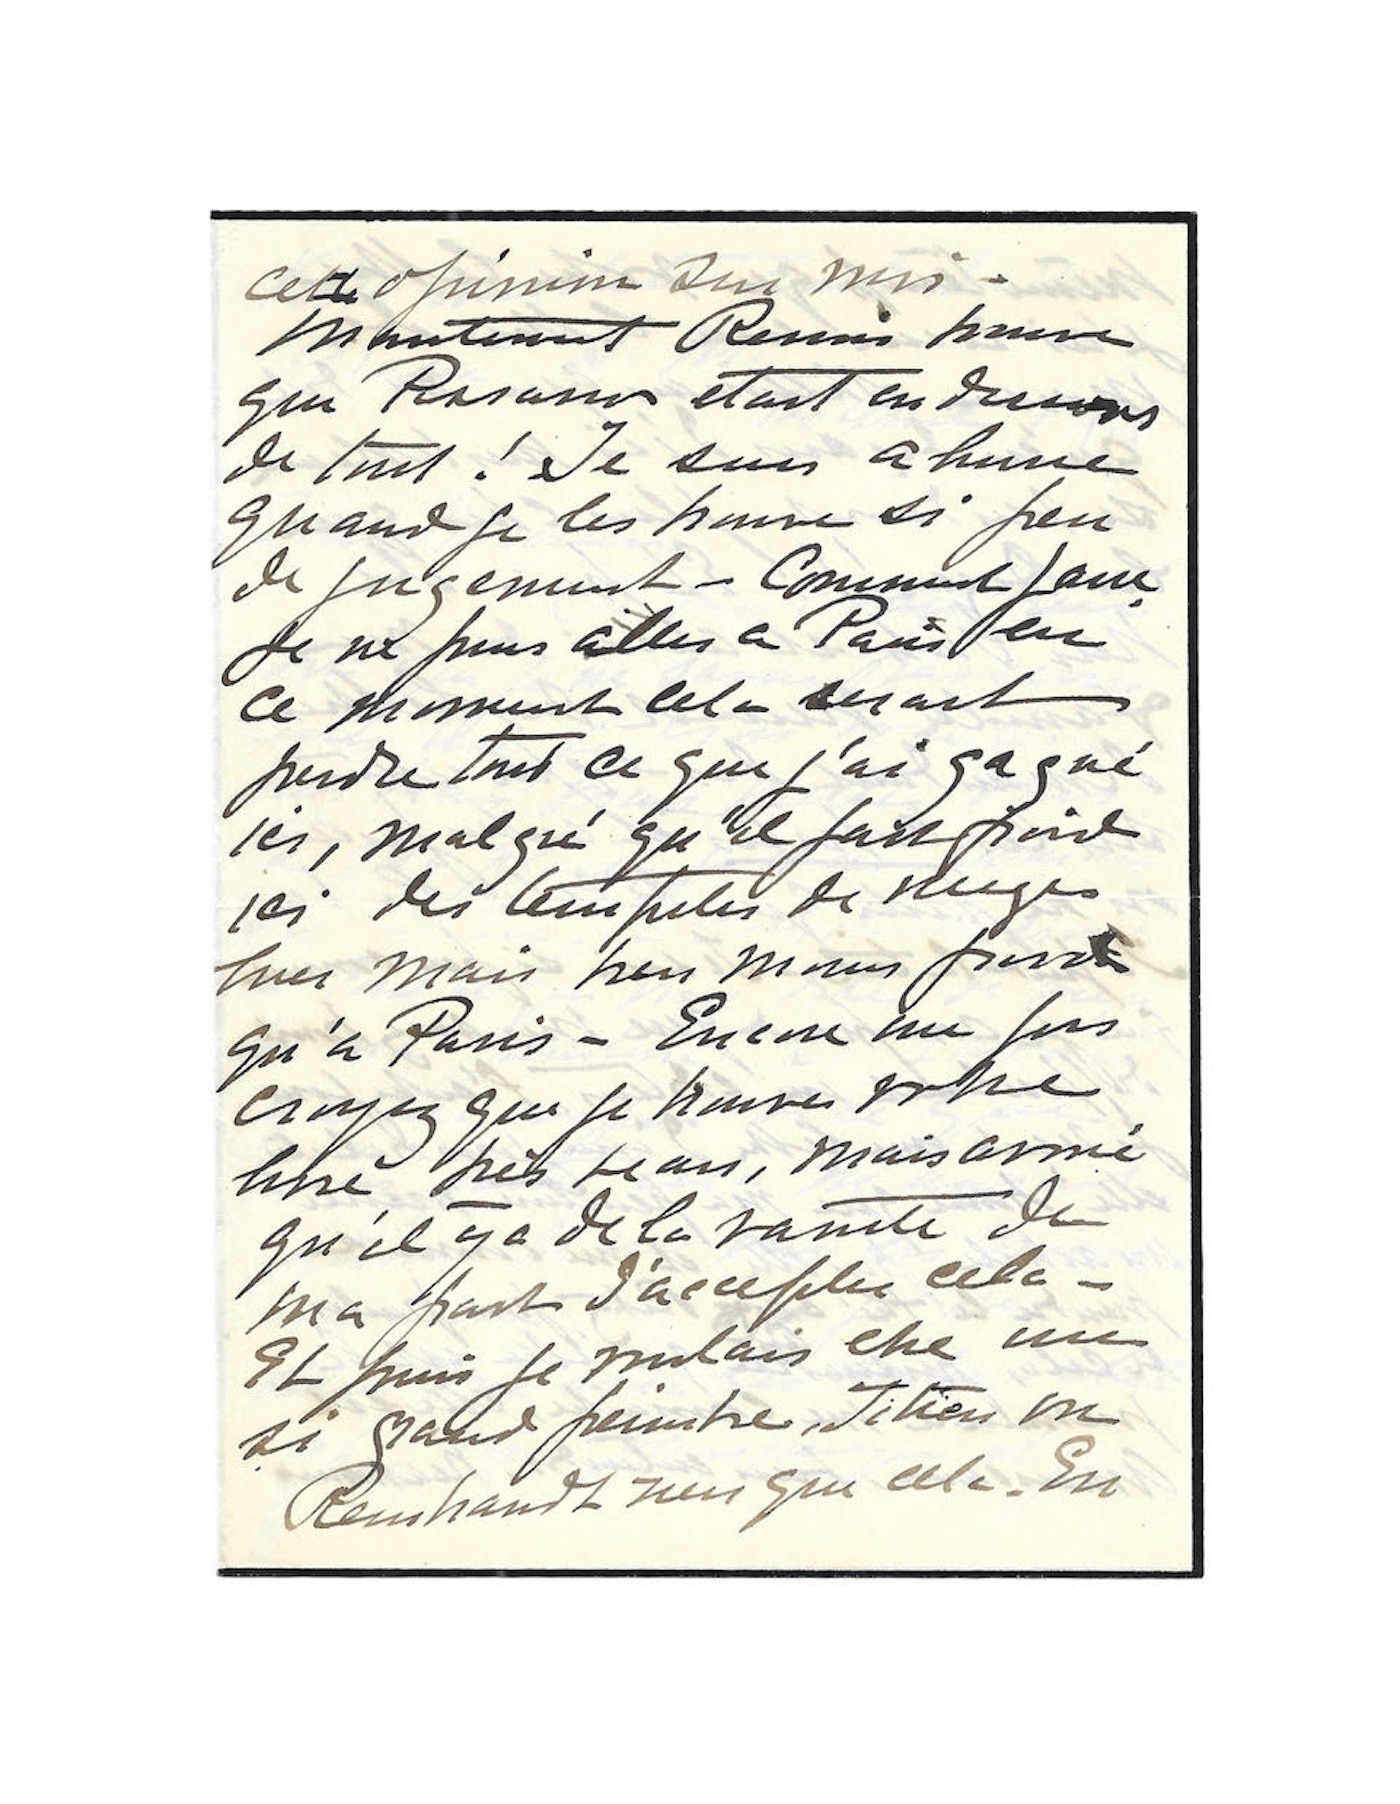 cette opinion sur moi -
Maintenant Renoir trouve
que Pissarro etait en dessous
de tout ! Je suis ahurie
quand je les trouve si peu
de jugement - Comment faire,
Je ne puis aller a Paris en
ce moment cela serait
perdre tout ce que j'ai gagné
ici, malgré qu'il fait froid
ici des tempêtes de neiges
hier mais bien moins froid
qu'a Paris - Encore une fois
croyez que je trouve votre
livre très beau, mais avoué
qu'il y a de la vanité de
ma part d'accepter cela -
Et puis je voulais etre un
si grand peintre, Titien ou
Rembrandt rien que cela. En